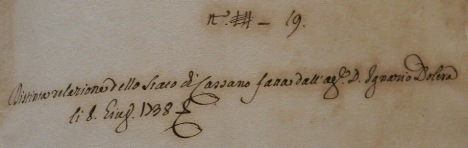 n.º — 19.
Distinta relazione dello Stato di Cassano fatta dall' agr.e D. Ignazio Dolera
li 8. Giug. 1738